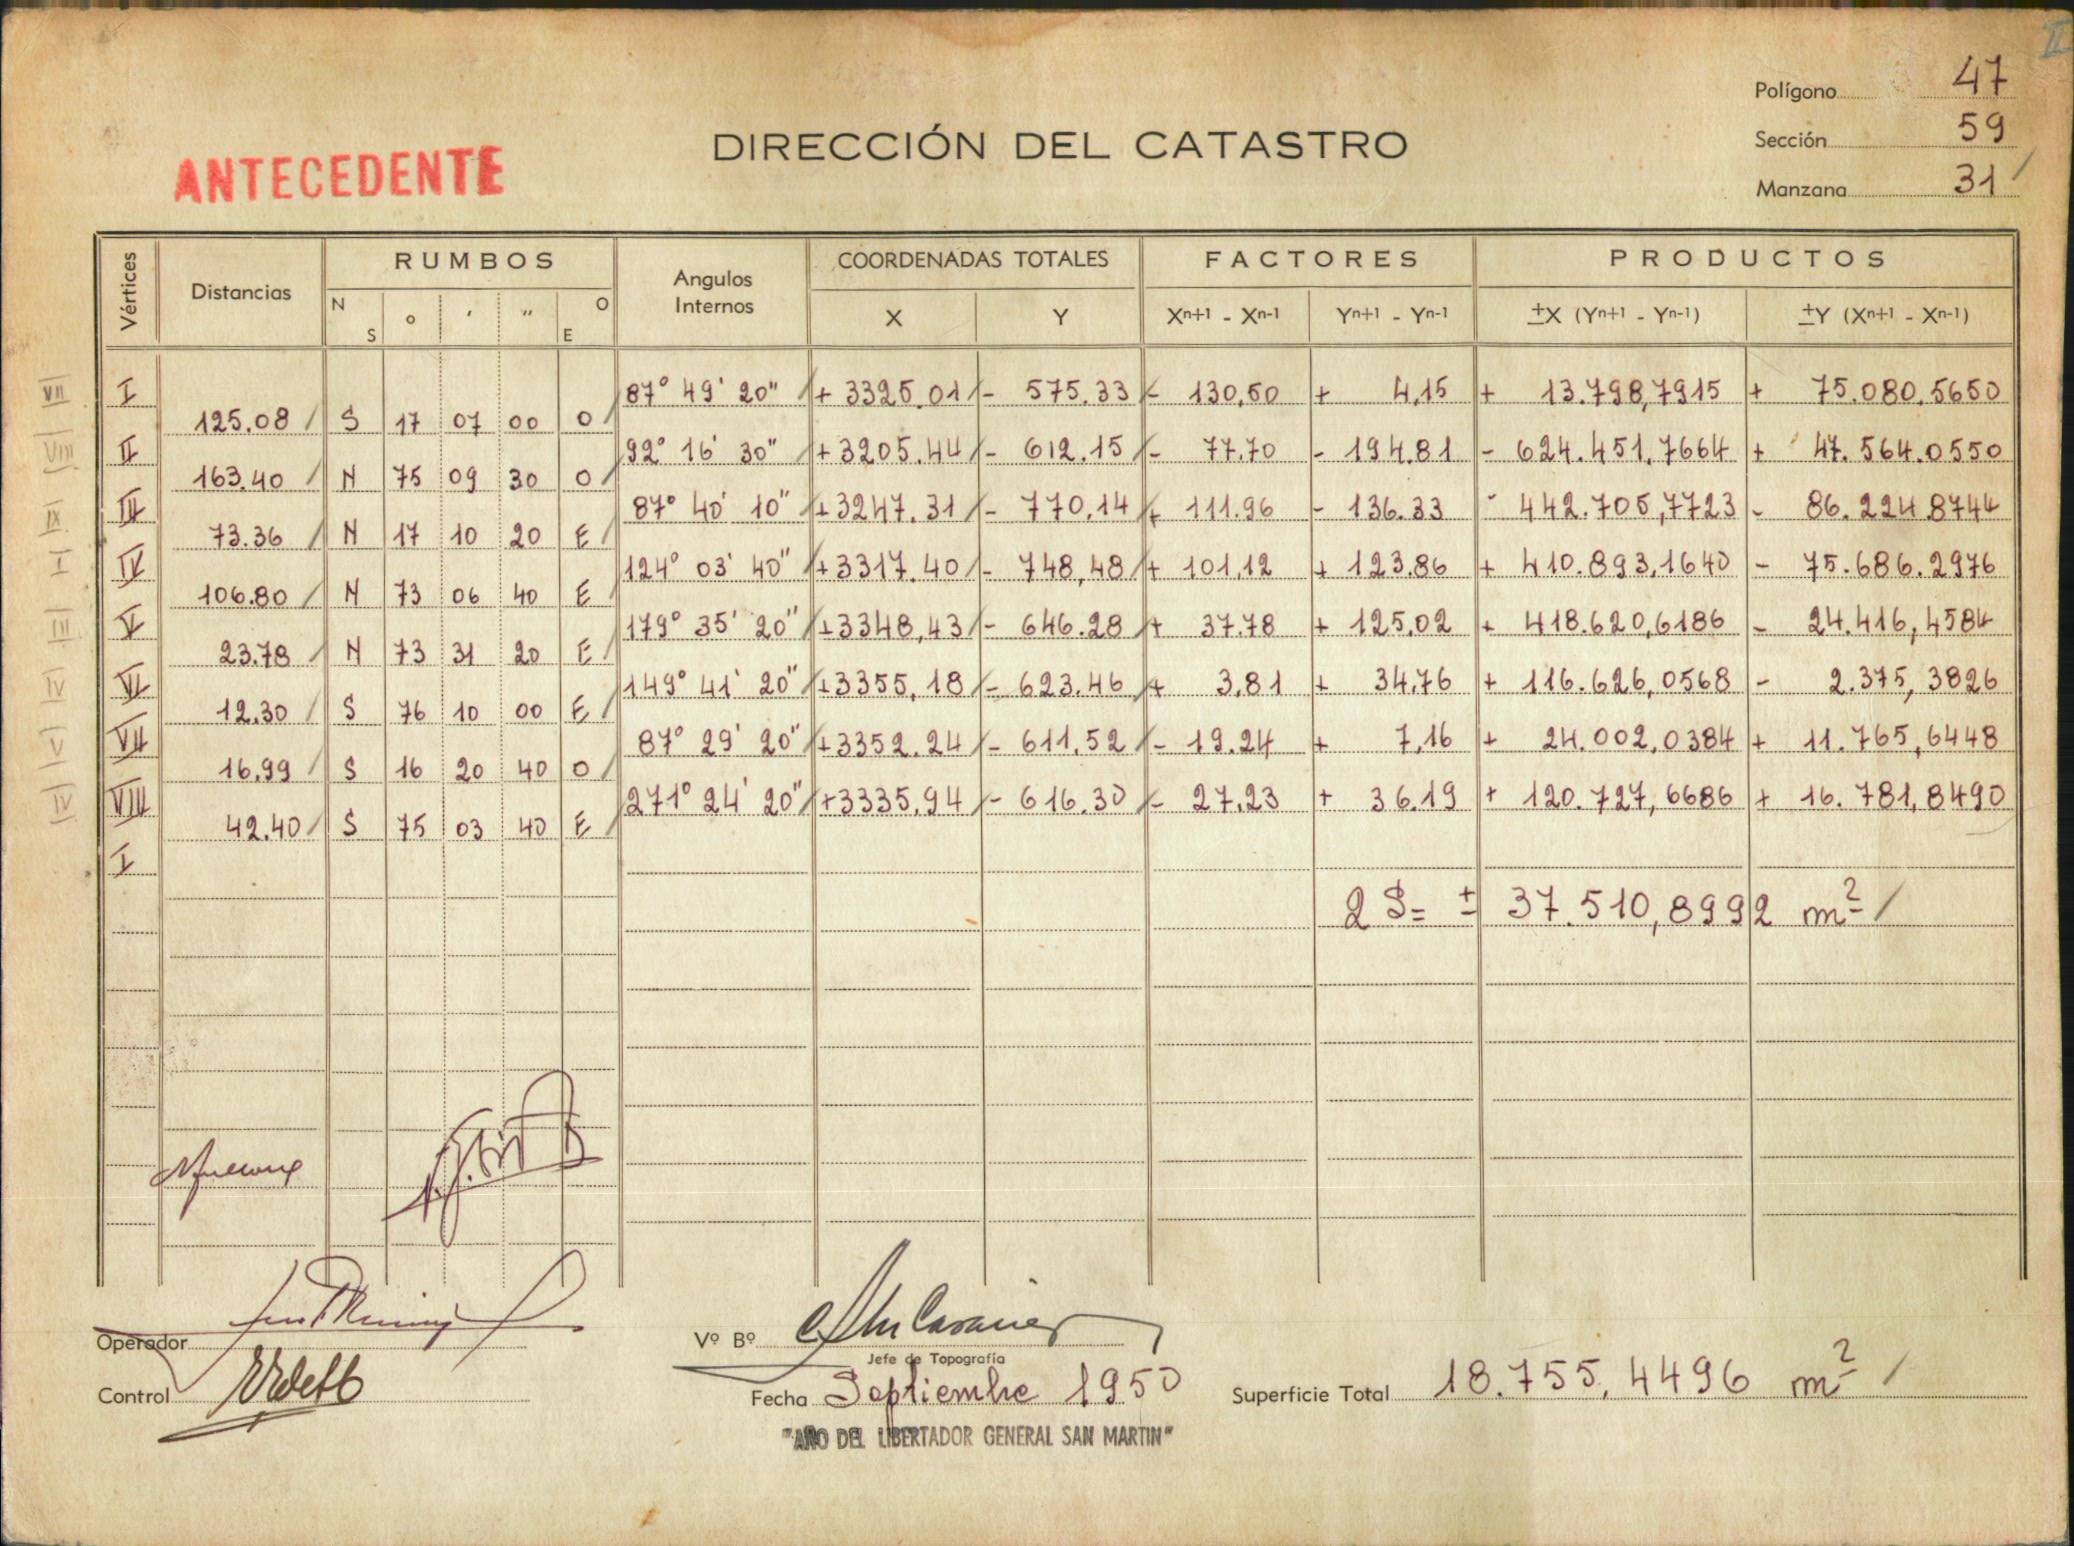 II
Polígono 47
DIRECCIÓN DEL CATASTRO
Sección 59
ANTECEDENTE
Manzana 31
Vértices Distancias RUMBOS Angulos Internos COORDENADAS TOTALES FACTORES PRODUCTOS
N S ° ' '' O E X Y Xn+1 - Xn-1 Yn+1 - Yn-1 ±X (Yn+1 - Yn-1) ±Y (Xn+1 - Xn-1)
VII I 87° 49' 20" + 3325.01 - 575.33 - 130,50 + 4,15 + 13.798,7915 + 75.080.5650
125.08 S 17 07 00 O
VIII II 92° 16' 30" +3205.44 - 612.15 - 77.70 - 194.81 - 624.451.7664 + 47.564.0550
163.40 N 75 09 30 O
IX III 87° 40' 10" +3247.31 - 770,14 + 111.96 - 136.33 - 442.705,7723 - 86.224.8744
73.36 N 17 10 20 E
I IV 124° 03' 40" +3317.40 - 748,48 + 101,12 + 123.86 + 410.893,1640 - 75.686.2976
106.80 N 73 06 40 E
III V 179° 35' 20" +3348,43 - 646.28 + 37.78 + 125,02 + 418.620,6186 - 24.416,4584
23.78 N 73 31 20 E
IV VI 149° 41' 20" +3355,18 - 623.46 + 3,81 + 34,76 + 116.626,0568 - 2.375,3826
12.30 S 76 10 00 E
V VII 87° 29' 20" +3352.24 - 611,52 - 19.24 + 7,16 + 24.002,0384 + 11.765,6448
16,99 S 16 20 40 O
IV VIII 271° 24' 20" +3335,94 - 616.30 - 27,23 + 36.19 + 120.727,6686 + 16.781,8490
42.40 S 75 03 40 E
I
2 S= ± 37.510,8992 m²
Operador
Vº Bº
Jefe de Topografía
Control
Fecha Septiembre 1950
Superficie Total 18.755,4496 m²
"AÑO DEL LIBERTADOR GENERAL SAN MARTIN"